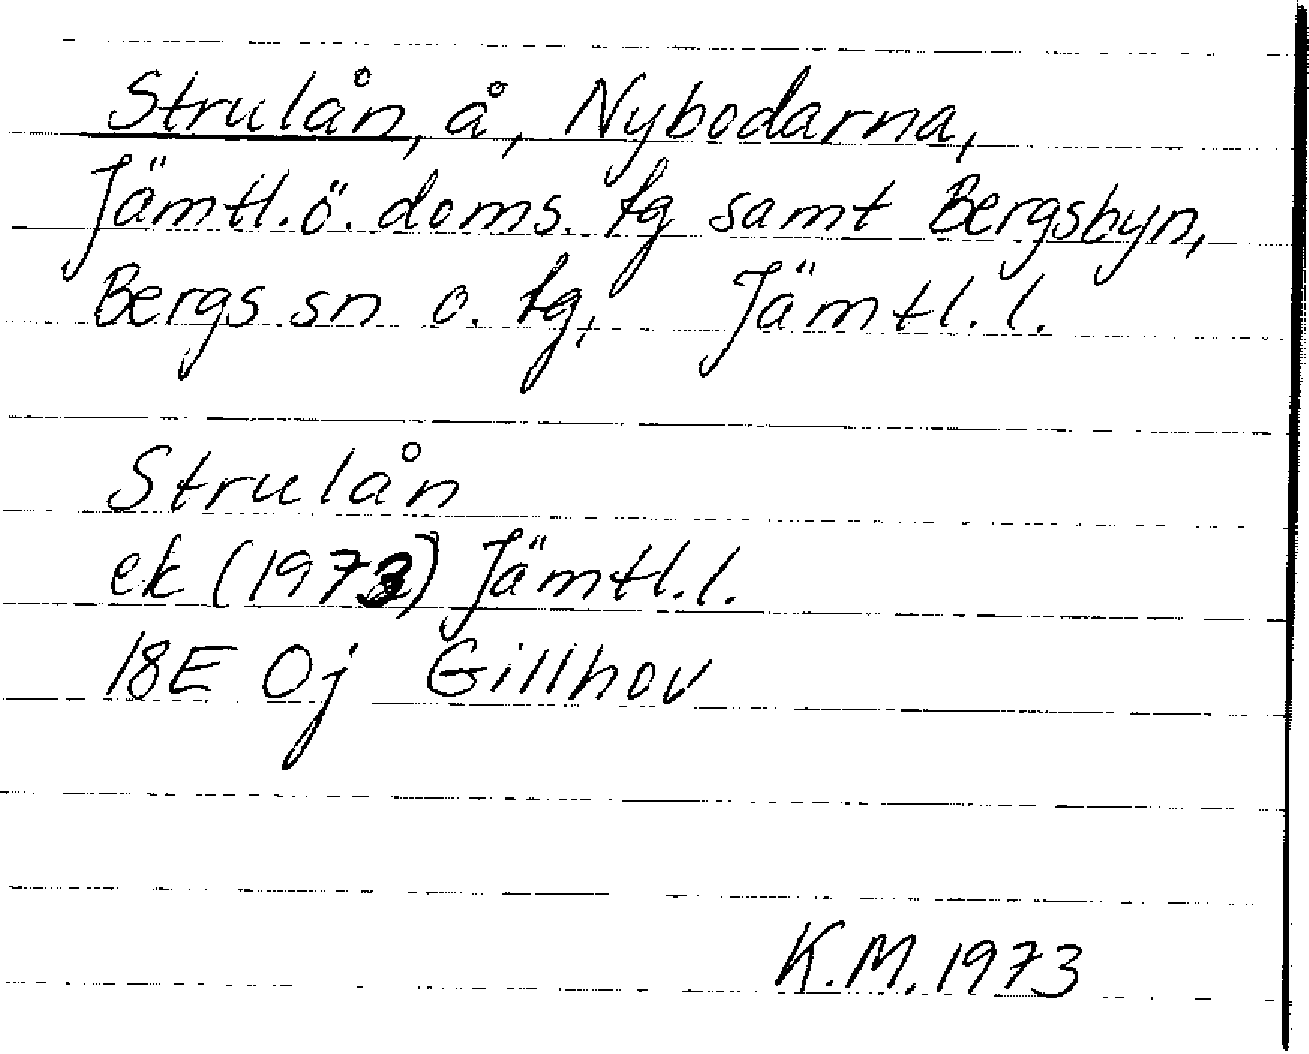 Strulån, å, Nybodarna,
Jämtl.ö. doms. tg samt Bergsbyn,
Bergs sn o. tg, Jämtl. l.
Strulån
ek (1973) Jämtl. l.
18E Oj Gillhov
K.M. 1973